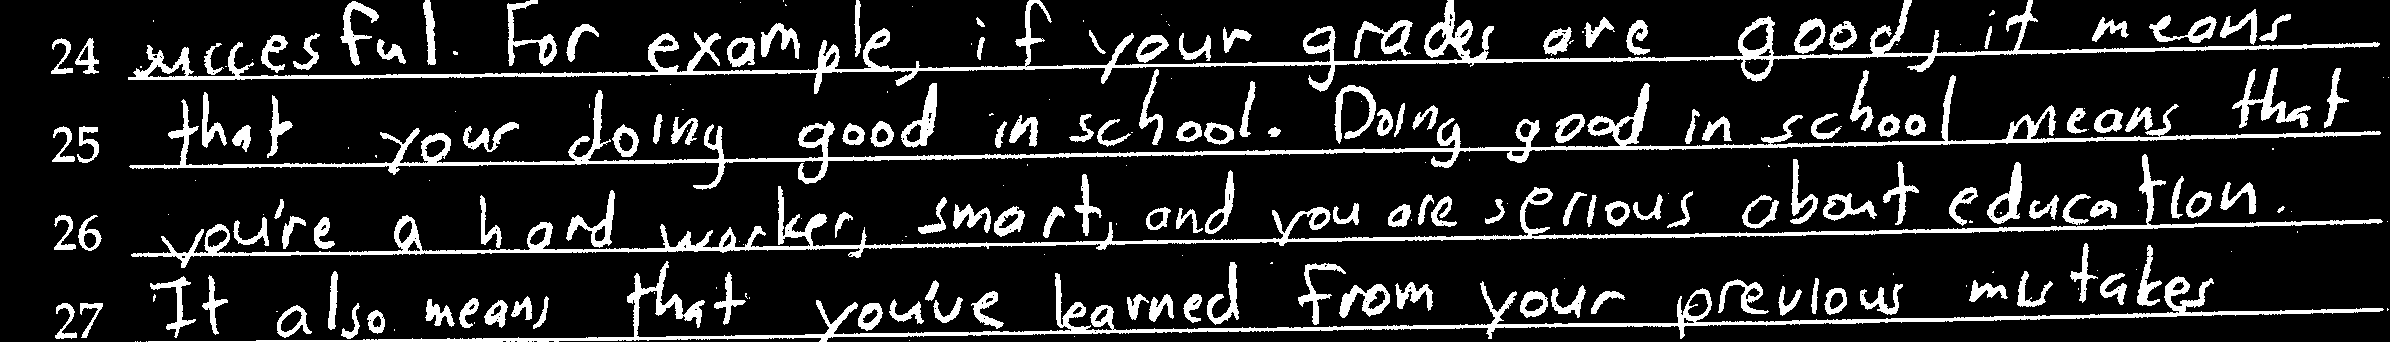 24 succesful. For example, if your grades are good, it means
25 that your doing good in school. Doing good in school means that
26 you're a hard worker, smart, and you are serious about education.
27 It also means that you've learned from your previous mistakes